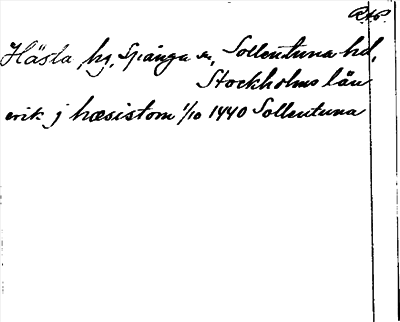 Hästa by, Spånga sn, Sollentuna hd,
Stockholms län
erik j hæsistom 1/10 1440 Sollentuna